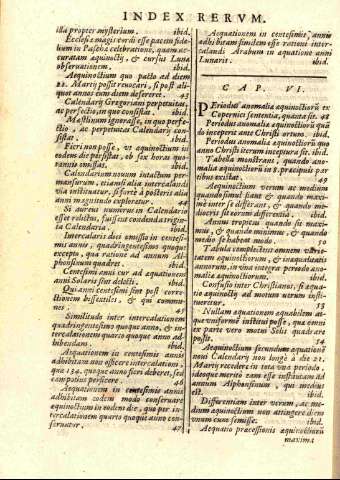 INDEX RERVM.
illa propter mysterium. ibid.
Ecclesiæ magis cordi esse pacem fide-
lium in Paschæ celebratione, quam ac-
curatam æquinoctij, & cursus Lunæ
obseruationem. ibid.
Aequinoctium quo pacto ad diem
21. Martij possit reuocari, si post ali-
quot annos eum diem desereret. 42
Calendarij Gregoriani perpetuitas,
ac perfectio in quo consistat. ibid.
Multum ignorasse, in quo perfe-
ctio, ac perpetuitas Calendarij con-
sistat. ibid.
Fieri non posse, vt æquinoctium in
eodem die persistat, ob sex horas quo-
tannis omissas. ibid.
Calendarium nouum intactum per-
mansurum, etiamsi alia intercalandi
via instituatur, si forte à posteris alia
anni magnitudo exploretur. 44
Si aureus numerus in Calendario
esset relictus, fuisset eodem die restigen-
da Calendaria. ibid.
Intercalaris dies omissio in centesi-
mis annis, quadringentesimo quoque
excepto, qua ratione ad annum Al-
phonsinum quadret. ibid.
Centesimi anni cur ad æquationem
anni Solaris sint delecti. ibid.
Qui anni centesimi sint post corre-
ctionem bissextiles, & qui commu-
nes. 45
Similitudo inter intercalationem
quadringentesimo quoque anno, & in-
tercalationem quarto quoque anno ad-
hibendam. ibid.
Aequationem in centesimis annis
adhibitam non officere intercalationi,
quæ 134. quoque anni fieri deberet, sed
eam potius perficere. 46
Aequationem in centesimis annis
adhibitam eodem modo conseruare
æquinoctium in eodem die, quo per in-
tercalationem quarto quoque anno con-
seruatur. 47
Aequationem in centesimis annis
adhibitam similem esse rationi inter-
calandi Arabum in æquatione anni
Lunaris. ibid.
CAP. VI.
Periodus anomaliæ æquinoctiorũ ex
Copernici sententia, quanta sit. 48
Periodus anomaliæ æquinoctiorũ quã
do inceperit ante Christi ortum. ibid.
Periodus anomaliæ æquinoctiorũ quo
anno Christi iterum inceptura sit. ibid.
Tabella monstrans, quando ano-
malia æquinoctiorum in 8. præcipuis par
tibus existat. 49
Aequinoctium verum ac medium
quando simul fiant & quando maxi-
mè inter se differant, & quando mi-
nor eis sit eorum differentia. ibid.
Anni tropici quando sit maxi-
mus, & quando minimus, & quando
medio se habeat modo. 50
Tabula complectens omnem varie-
tatem æquinoctiorum, & inæqualitatis
annorum, in vna integra periodo ano-
maliæ æquinoctiorum. ibid.
Confusio inter Christianos, si æqua-
tio æquinoctij ad motum verum insti-
tueretur. 53
Nullam æquationem æquabilem at-
que vniformem institui posse, quæ omni
ex parte vero motui Solis quadrare
possit. 54
Aequinoctium secundum æquationẽ
noui Calendarij non longè à die 21.
Martij recedere in tota vna periodo,
ideoque meritò eam esse institutam ad
annum Alphonsinum, qui medius
est. ibid.
Differentiam inter verum, ac me-
dium æquinoctium non attingere diem
vnum cum semisse. ibid.
Aequatio præcessionis æquinoctiorũ
maxima